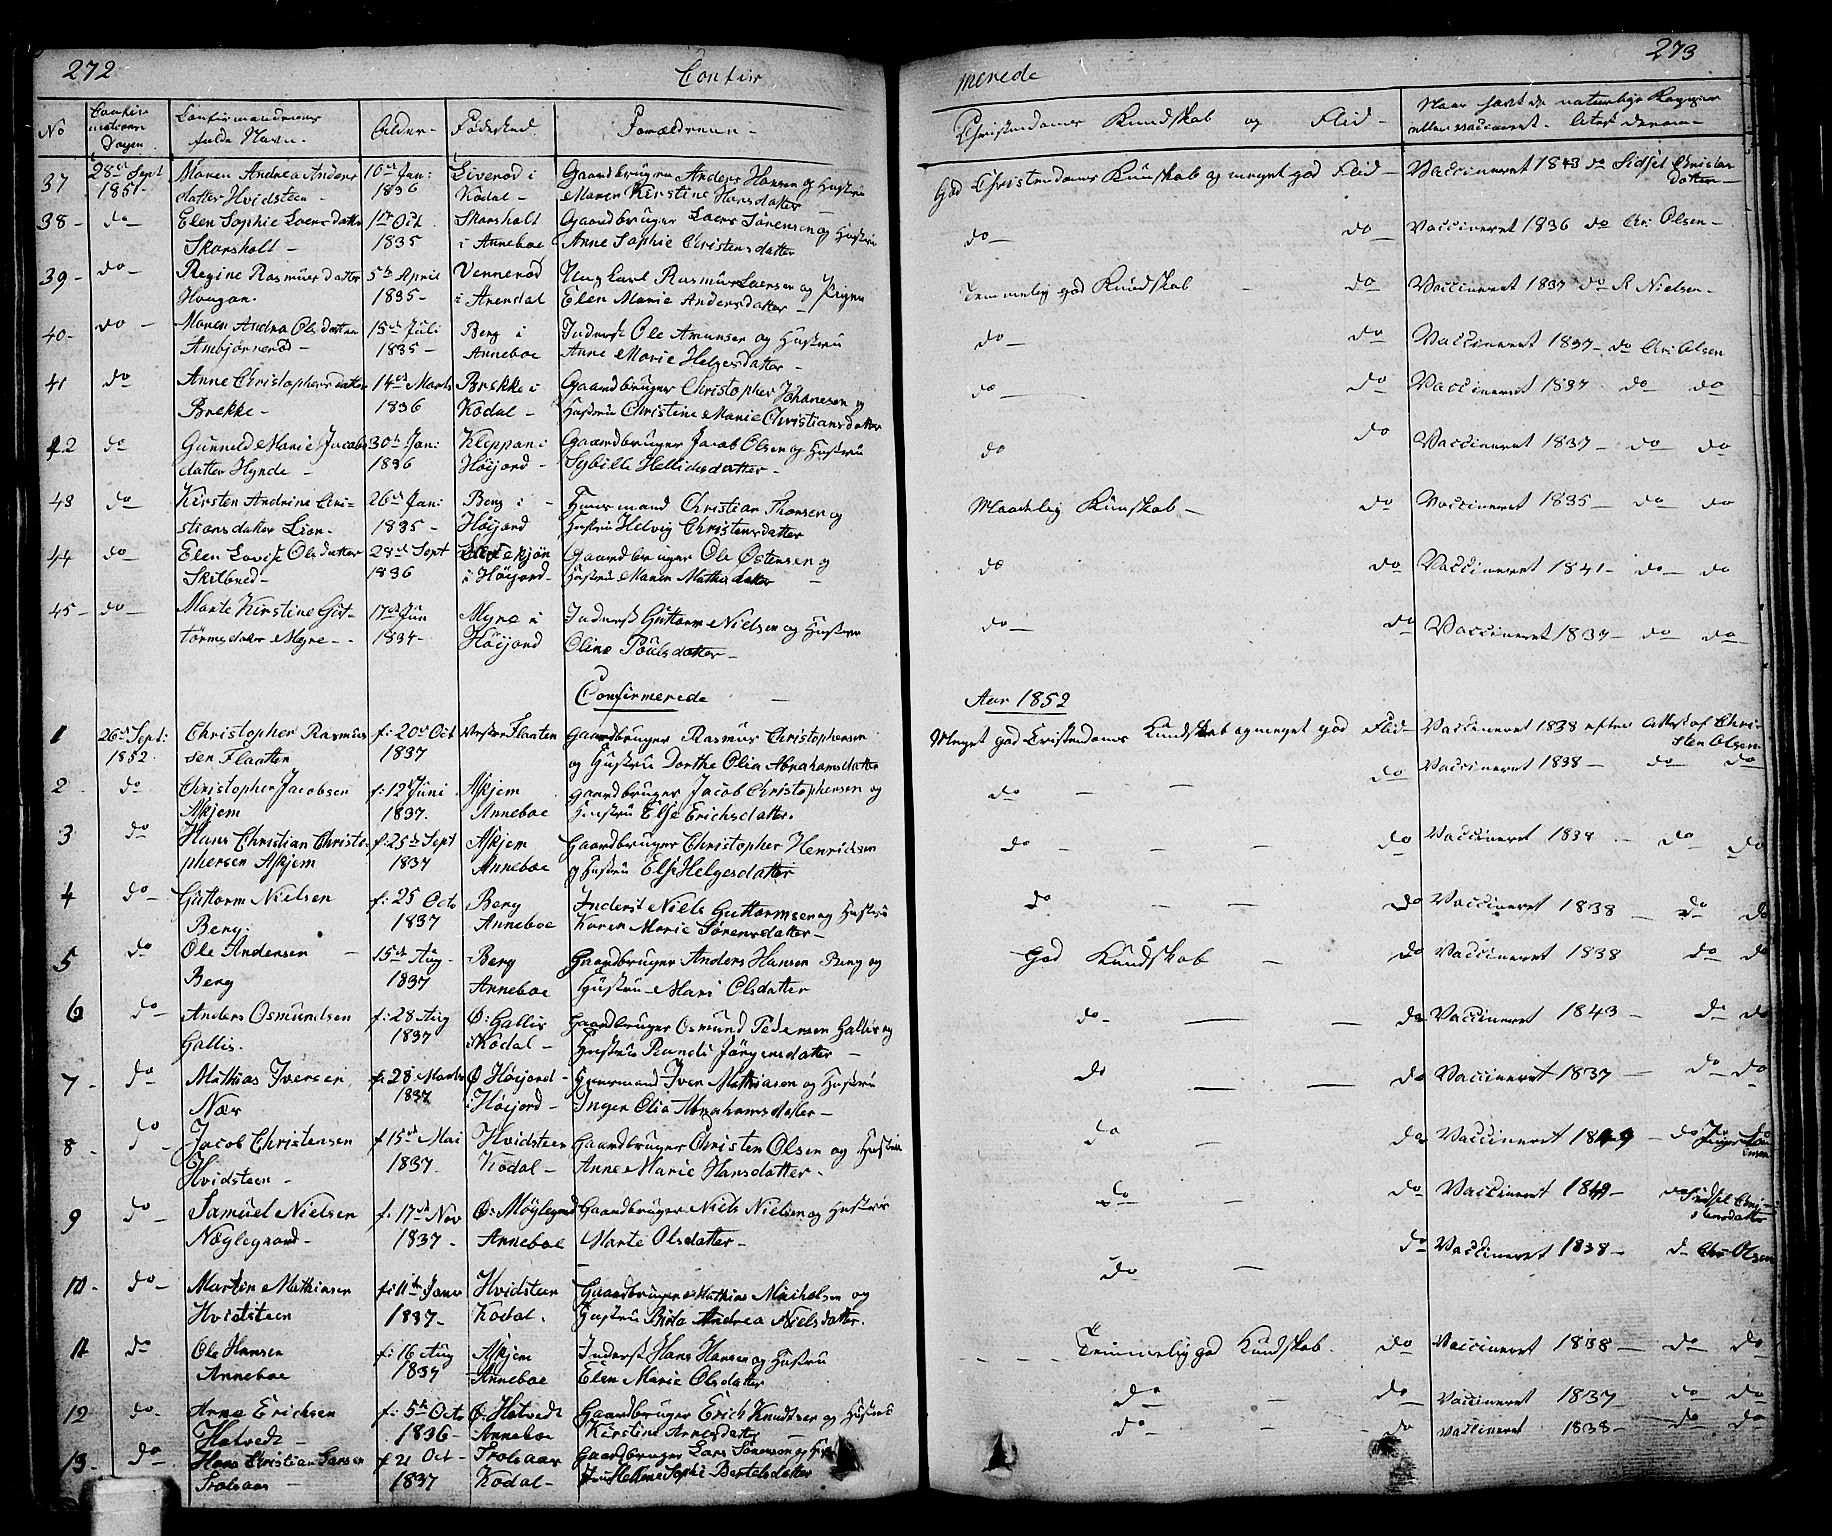 272
Confir
merede
273
No
Confirmations Dagen.
Confirmandernes fulde Navn.
Alder.
Fødested.
Forældrene.
Christendoms Kundskab og Flid
Naar havt de naturlige Kopper eller vaccineret. Attest derom.
37 28de Sept 1851 Maren Andrea Anders 10de Jan: Liverød i Gaardbruger Anders Hansen og Hustru God Christendoms Kunskab og meget god Flid Vaccineret 1843 do Sidsel Christen
datter Hvidsteen 1836 Kodal Maren Kirstine Hansdatter datter
38 do Elen Sophie Laersdatter 1te Oct. Skorsholt Gaardbruger Laers Sörensen og Hustru do do Vaccineret 1836 do Chr. Olsen
Skorsholt 1835 i Anneboe Anne Sophie Christensdatter
39 do Regine Rasmusdatter 5te April Vennerød Ungkarl Rasmus Laersen og Pigen Temmelig god Kundskab do Vaccineret 1837 do R Nielsen
Hougan. 1835 i Arendal Elen Marie Andersdatter
40 do Maren Andrea Olsdatter 15de Juli Berg i Inderst Ole Amunsen og Hustru do do Vaccineret 1837 do Chr. Olsen
Ambjørnerød 1835 Anneboe Anne Marie Helgesdatter
41 do Anne Christophersdatter 14de Marts Brekke i Gaardbruger Christopher Johanesen og do do Vaccineret 1837 do do
Brekke 1836 Kodal Hustru Christine Marie Christiansdatter
42 do Gunneld Marie Jacobs 30te Jan: Kleppan i Gaardbruger Jacob Olsen og Hustru do do Vaccineret 1837 do do
datter Hynde 1836 Høijord Sybille Hellichsdatter
43 do Kirsten Andrine Chri- 26de Jan: Berg i Huusmand Christian Thorsen og Maadelig Kunskab do Vaccineret 1835 do do
stiansdatter Lien 1835 Høijord Hustru Helvig Christensdatter
44 do Elen Lovise Olsdatter 28de Sept Gaardbruger Ole Østensen og do do Vaccineret 1841 do do
Skilbred 1836 i Høijord Hustru Maren Mathisdatter
45 do Marte Kirstine Gut- 17de Jun Myre i Inderst Guttorm Nielsen og Hustru do do Vaccineret 1837 do do
tormsdatter Myre 1834 Høijord Oline Poulsdatter
Confirmerede
Aar 1852
1 26de Sept: Christopher Rasmus f: 20de Oct Vestre Flaaten Gaardbruger Rasmus Christophersen Meget god Cristendoms Kundskab og meget god Flid Vaccineret 1838 efter Attest af Chri-
1852. sen Flaatten 1837 og Hustru Dorthe Olia Abrahamsdatter sten Olsen
2 do Christopher Jacobsen f: 12te Juni Askjem Gaardbruger Jacob Christophersen og do do Vaccineret 1838 do do
Askjem 1837. Anneboe Hustru Else Erichsdatter.
3 do Hans Christian Christo- f: 25de Sept Askjem Gaardbruger Christopher Henrichsen do do Vaccineret 1838 do do
phersen Askjem 1837 Anneboe og Hustru Else Helgesdatter
4 do Guttorm Nielsen f: 25 Octo Berg Inderst Niels Guttormsen og Hustru do do Vaccineret 1838 do do
Berg: 1837 Anneboe Karen Marie Sörensdatter
5 do Ole Andersen 15de Aug Berg Gaardbruger Anders Hansen Berg og God Kundskab do Vaccineret 1838 do do
Berg 1837 Anneboe Hustru Mari Olsdatter
6 do Anders Osmundsen f: 28 Aug Ø: Gallis Gaardbruger Osmund Pedersen Gallis og do do Vaccineret 1843 do do
Gallis. 1837 i Kodal Hustru Randi Jörgensdatter
7 do Mathias Iversen f: 28 Marts Ø Høijord Huusmand Iver Mathiasen og Hustru do do Vaccineret 1837 do do
Nær 1837 i Høijord Inger Olia Abrahamsdatter
8 do Jacob Christensen f 15de Mai Hvidsteen Gaardbruger Christen Olsen og Hustru do do Vaccineret 1849 do
Hvidsteen 1837. Kodal Anne Marie Hansdatter.
9 do Samuel Nielsen f: 17de Nov Ø: Møglegaard Gaardbruger Niels Nielsen og Hustru do do Vaccineret 1849 do Sidsel Chri-
Nøglegaard 1837 Anneboe Marte Olsdatter stensdatter
10 do Marten Mathiasen f: 11te Janu Hvidsteen Gaardbruger Mathias Michelsen og do do Vaccineret 1838 do Chr Olsen
Hvidsteen 1837 Kodal. Hustru Birta Andrea Nielsdatter.
11 do Ole Hansen f: 16 Aug Askjem Inderst Hans Hansen og Hustru Temmelig god Kundskab. do Vaccineret 1838 do do
Anneboe 1837 Anneboe Elen Marie Olsdatter
12 do Arne Erichsen f: 5te Octo Ø: Hotvedt Gaardbruger Erich Knudtsen og Hustru do do Vaccineret 1837 do do
Hotvedt 1836 Anneboe Kirstine Arnesdatter
13 do Hans Christian Larsen f 21 Oct Trolsaas Gaardbruger Lars Sörensen og Hu- do do Vaccineret 1838 do do
Trolsaas 1837 Kodal stru Hellene Sophi Bertelsdatter